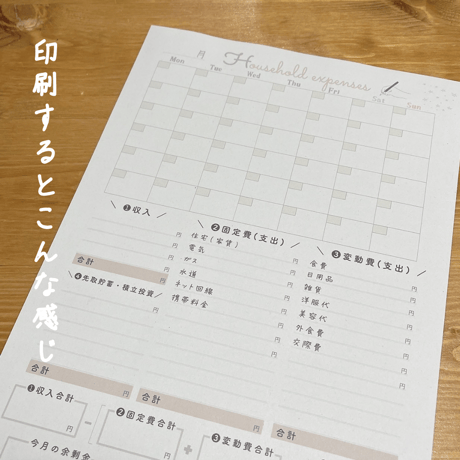 印刷するとこんな感じ
月
Household expenses
Mon Tue Wed Thu Fri Sat Sun
\ ❶収入 /
円
円
円
合計 円
\ ❹先取貯蓄・積立投資 /
円
合計 円
\ ❷固定費(支出) /
住宅(家賃) 円
電気 円
ガス 円
水道 円
ネット回線 円
携帯料金 円
円
合計 円
\ ❸変動費(支出) /
食費 円
日用品 円
雑貨 円
洋服代 円
美容代 円
外食費 円
交際費 円
円
円
合計
❶収入合計
円
−
❷固定費合計
円
+
❸変動費合計
今月の余剰金